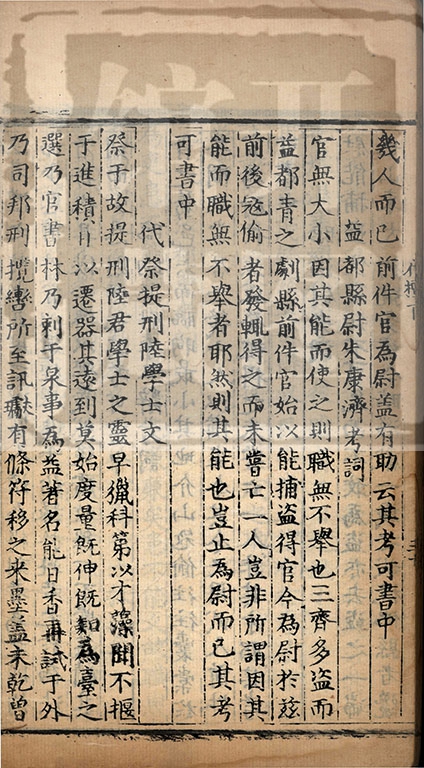 幾人而已前件官為尉蓋有助云其考可書中
益都縣尉朱康濟考詞
官無大小因其能而使之則職無不舉也三齊多盗而
益都青之劇縣前件官始以能捕盗得官今為尉於兹
前後冦偷者發輒得之而未嘗亡一人豈非所謂因其
能而職無不舉者耶然則其能也豈止為尉而已其考
可書中
代祭提刑陸學士文
祭于故提刑陸君學士之靈早獵科第以才藻聞不揠
于進積月以遷器其遠到莫始度量旣伸旣知為臺之
選乃官書林乃剌于杲事為益著名能日香再試于外
乃司邦刑攬轡所至訊讞有條符移之来墨蓋未乾曽